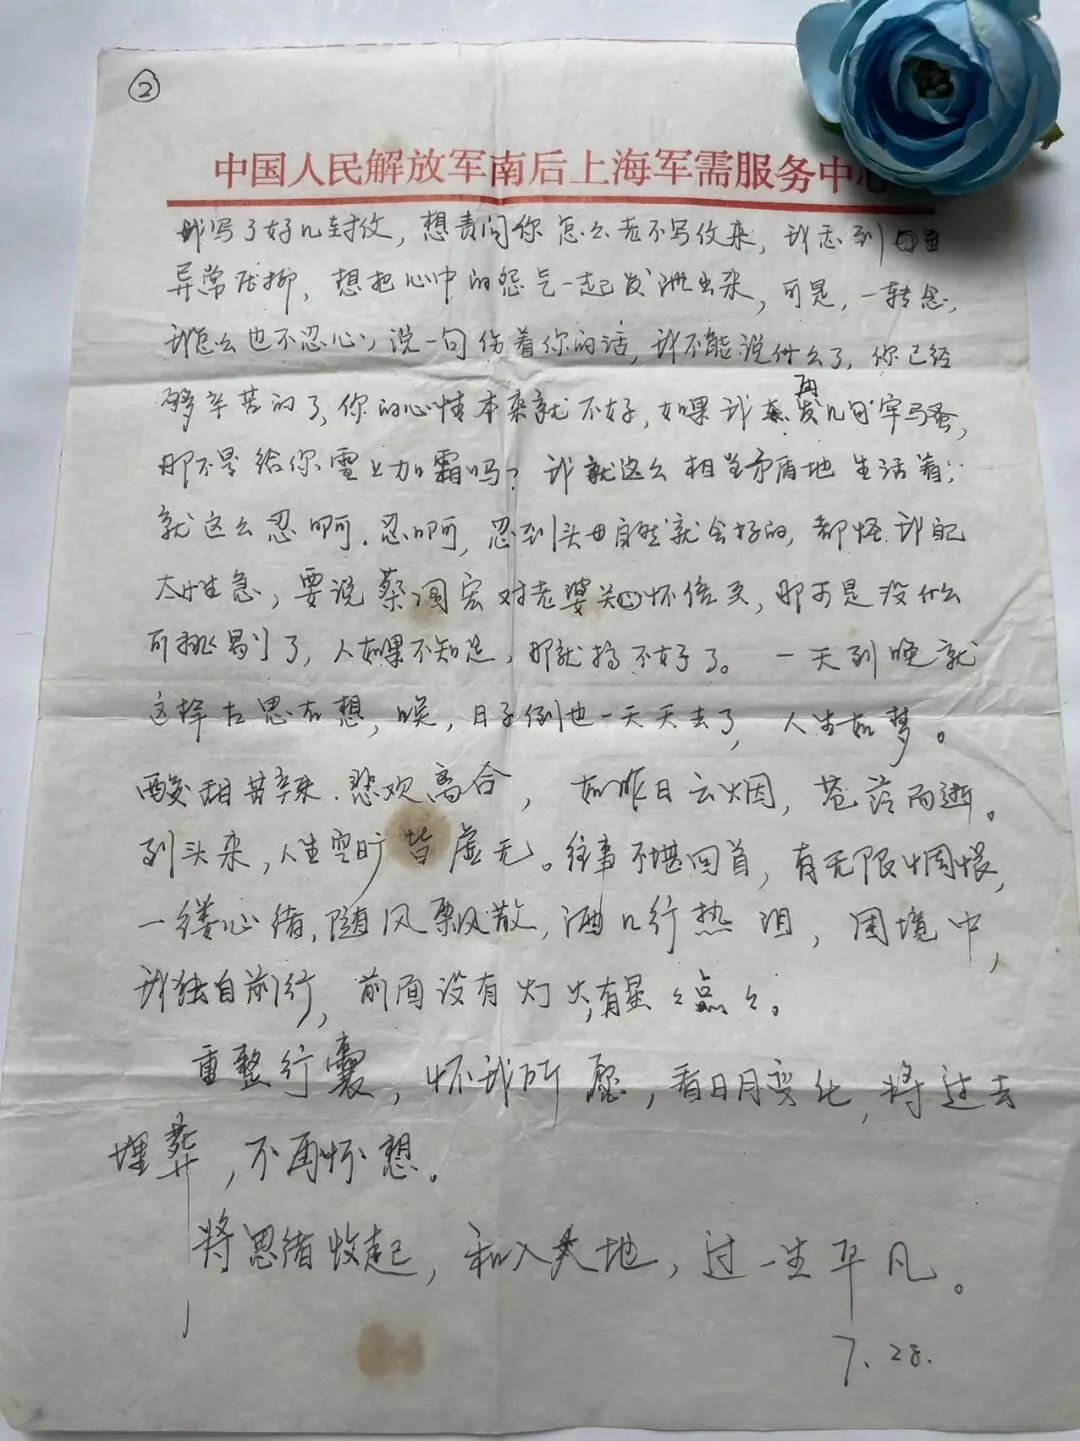 ②
中国人民解放军南后上海军需服务中心
我写了好几封信，想责问你怎么老不写信来，我感到
异常压抑，想把心中的怨气一起发泄出来，可是，一转念，
我怎么也不忍心，说一句伤着你的话，我不能说什么了，你已经
够辛苦的了，你的心情本来就不好，如果我再发几句牢骚，
那不是给你雪上加霜吗？我就这么相当矛盾地生活着；
就这么忍啊．忍啊，忍到头自然就会好的，都怪我自己
太性急，要说蔡国宏对老婆关怀倍至，那可是没什么
可挑剔了，人如果不知足，那就搞不好了。一天到晚就
这样左思右想，唉，日子倒也一天天去了，人生如梦。
酸甜苦辣．悲欢离合，如昨日云烟，苍茫而逝。
到头来，人生空旷皆虚无。往事不堪回首，有无限惆怅，
一缕心绪，随风飘散，洒几行热泪，困境中，
我独自前行，前面没有灯火，有星々点々。
重整行囊，怀我所愿，看日月变化，将过去
埋葬，不再怀想。
将思绪收起，和入天地，过一生平凡。
7.28.